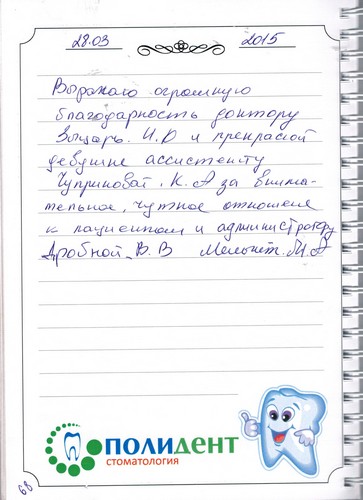 28.03 2015
Выражаю огромную
благодарность доктору
И.О и прекрасной
девушке ассистенту
Чуприновой. К. А за внима-
тельное, чуткое отношение
к пациентам и администратору
Дробной. В. В
68
ПОЛИДЕНТ
СТОМАТОЛОГИЯ